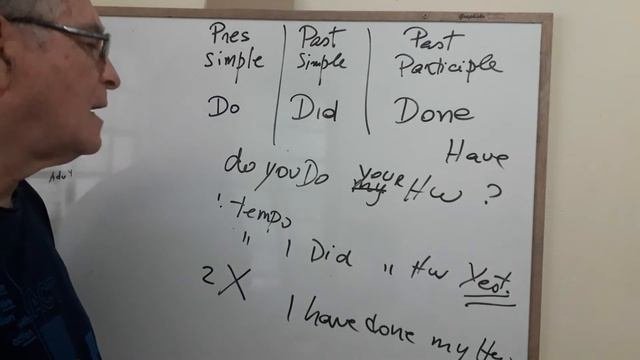 Pres simple | Past Simple | Past Participle
Do | Did | Done
Have
do you Do your HW ?
! tempo
" I Did " HW Yest.
2 X
I have done my